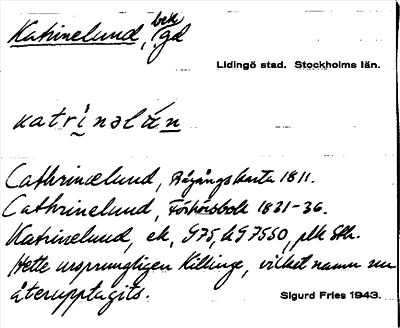 Katrinelund, bek gd
Lidingö stad. Stockholms län.
katrìnəlán
Cathrinelund, Rågångskarta 1811.
Cathrinelund, Förhörsbok 1831-36.
Katrinelund, ek, G75, LG7550, plk Sth.
Hette ursprungligen Killinge, vilket namn nu
återupptagits.
Sigurd Fries 1943.